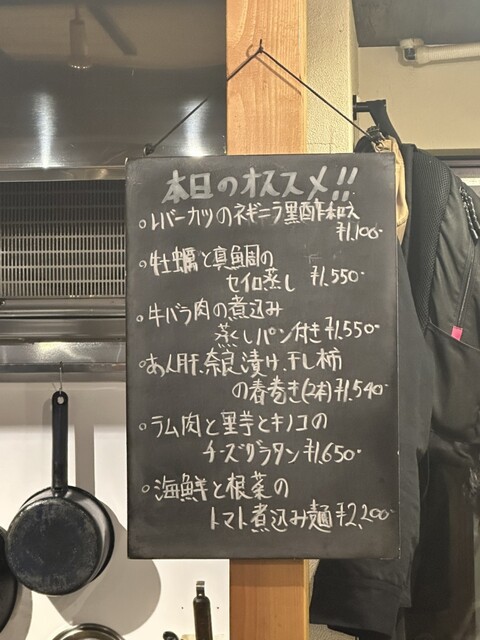 本日のオススメ!!
○レバーカツのネギニラ黒酢和え
¥1,100-
○牡蠣と真鯛の
セイロ蒸し ¥1,550-
○牛バラ肉の煮込み
蒸しパン付き ¥1,550-
○あん肝、奈良漬け、干し柿
の春巻き(2本) ¥1,540-
○ラム肉と里芋とキノコの
チーズグラタン ¥1,650-
○海鮮と根菜の
トマト煮込み麺 ¥2,200-